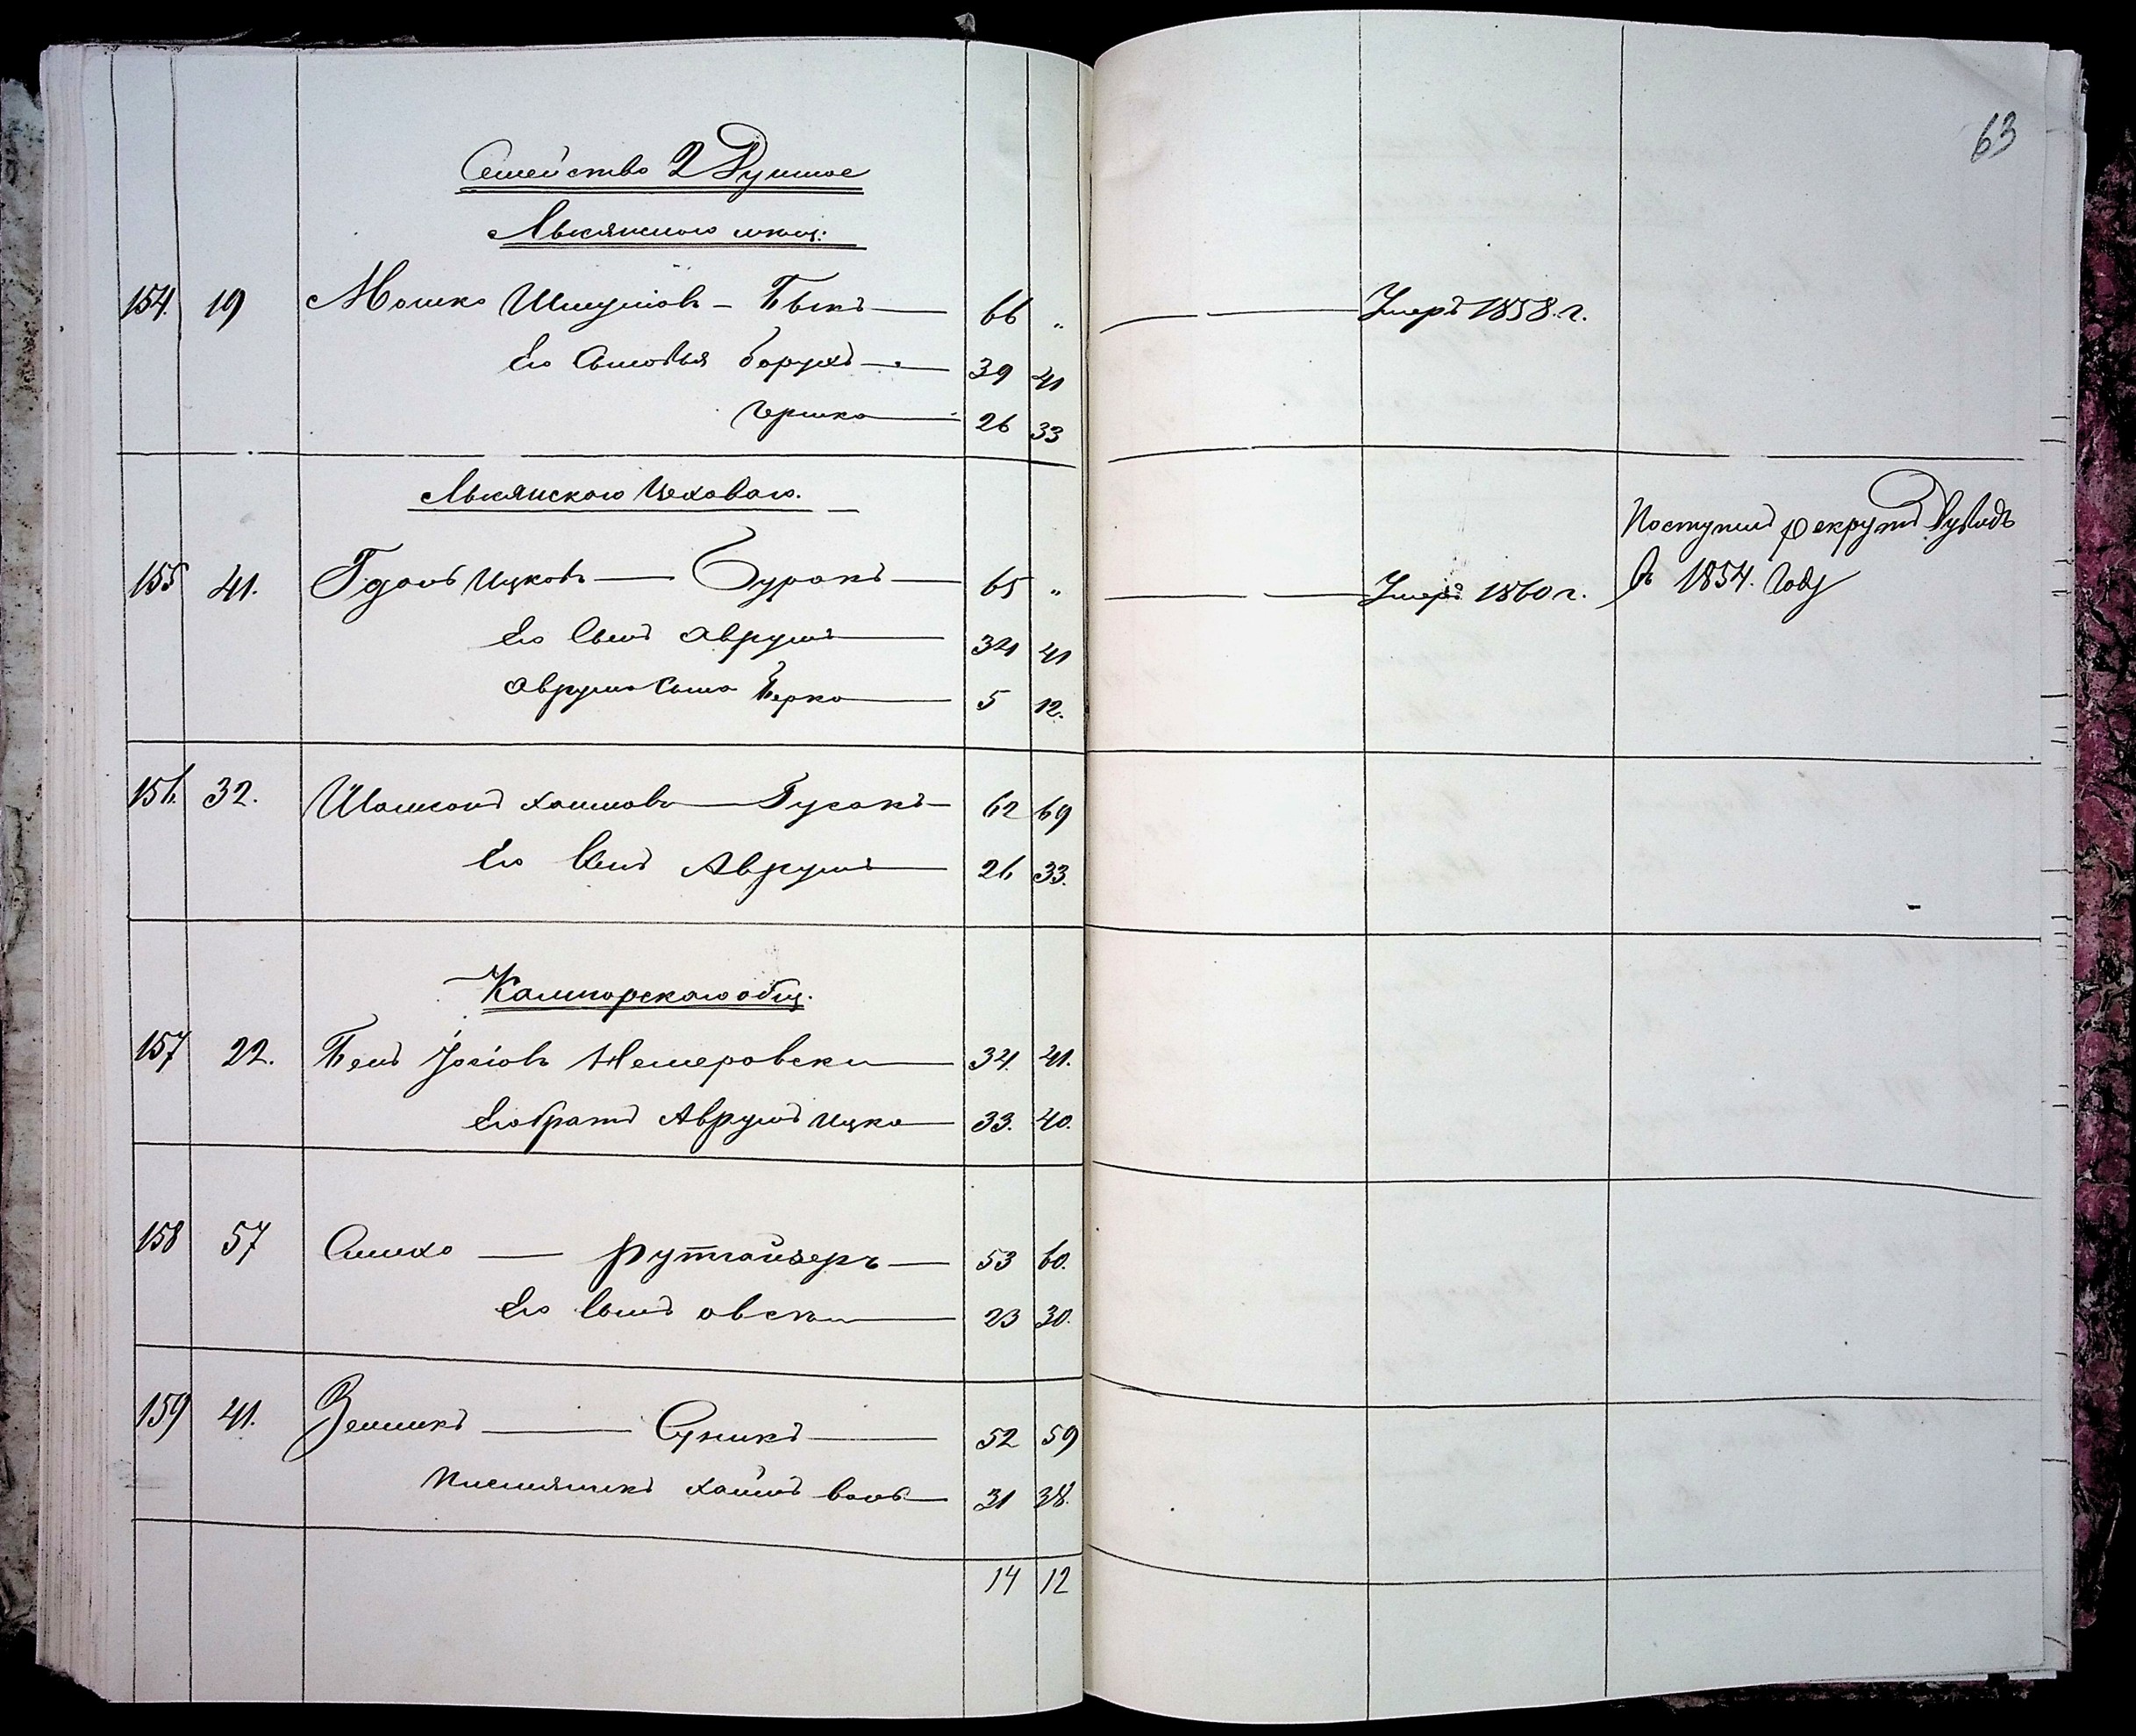 63
Семейство 2 Душное
Лысянского мѣщ:
154. 19 Мошко Шмулiовъ - Быкъ 66 "
Умеръ 1858. г.
Его Сыновья Борухъ 39 41
Гершко 26 33
Лысянского Цеховаго.
Поступилъ рекрутъ Дувидъ
въ 1854. Году
155 41. Гдаль Ицковъ Буракъ 65 "
Умеръ 1860 г.
Его Сынъ Аврумъ 34 41
Аврума Сынъ Берко 5 12.
156. 32. Шамсонъ Хаимовъ Гусакъ 62 69
Его Сынъ Аврумъ 26 33.
общ.
157 22. Бенъ Iосiовъ Немеровски 34. 41.
Его братъ Аврумъ Ицко 33. 40.
158 57 Симхо Рутгайзеръ 53 60.
Его Сынъ Овсѣй 23 30.
159 41. Зелликъ Суникъ 52 59
Племянникъ Хаимъ Волъ 31 38.
14 12